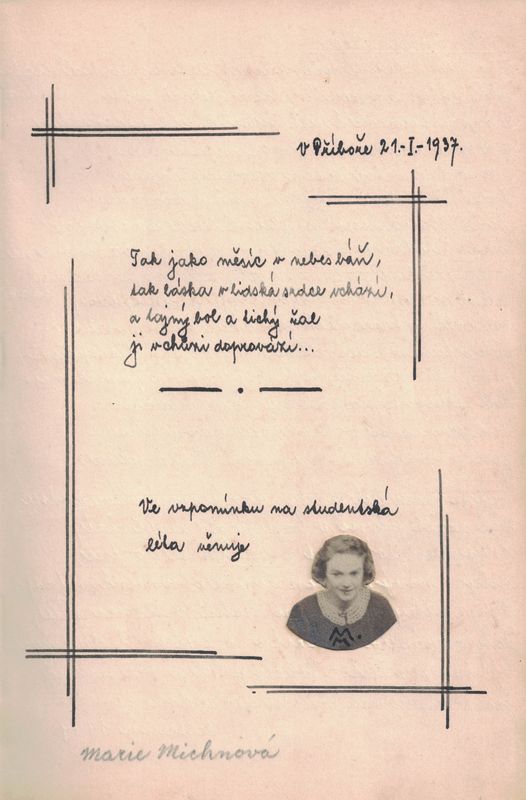 V Příboře 21.-I.-1937.
Tak jako měsíc v nebes báň,
tak láska v lidská srdce vchází,
a tajný bol a tichý žal
ji v chůzi doprovází...
Ve vzpomínku na studentská
léta věnuje
M.M.
Marie Michnová